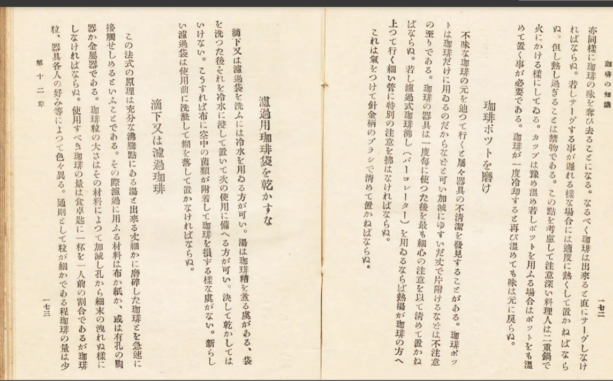 珈琲の知識
一七二
亦同樣に珈琲の味を落ち去ることになる。なるべく珈琲は出來ると直にサーヴしなけ
ればならぬ。若しサーヴする事が遲れる樣な場合には適度に熱くして置かねばなら
ぬ。但し熱し過ぎることは禁物である。この點を考慮して注意深い料理人は二重鍋で
火にかける樣にしてゐる。カップは豫め温め若しポットを用ふる場合はポットをも温
めて置く事が必要である。珈琲が一度冷却すると再び温めても味は元に戻らぬ。
珈琲ポットを磨け
不味な珈琲の元を辿つて行くと屡々器具の不清潔を發見することがある。珈琲ポッ
トは珈琲だけに用ゐるのだからなどと可い加減にゆすいだ丈で片附けるなどは不注意
の至りである。珈琲の器具は一度毎に使つた後を最も細心の注意を以て清めて置かね
ばならぬ。若し濾過式珈琲沸し（パーコレーター）を用ゐるならば熱湯が珈琲の方へ
上つて行く細い管に特別の注意を拂はなければならぬ。
これは氣をつけて針金柄のブラシで清めて置かねばならぬ。
濾過用珈琲袋を乾かすな
滴下又は濾過袋を洗ふには冷水を用ゐる方が可い。湯は珈琲精を煮る虞がある、袋
を洗つた後それを冷水に浸して置いて次の使用に備へる方が可い。決して乾かしては
いけない。こうすれば布に空中の菌類が附着して珈琲を損する樣な虞がない。新らし
い濾過袋は使用前に洗濯して糊を落して置かなければならぬ。
滴下又は濾過珈琲
この法式の原理は充分な沸騰點にある湯と出來る丈細かに磨碎した珈琲とを急速に
接觸せしめるといふことである。その際濾過に用ふる材料は布か紙か、或は有孔の陶
器か金屬器である。珈琲粒の大さはその材料によつて加減し孔から細末の洩れぬ樣に
しなければならぬ。使用すべき珈琲の量は食卓匙に一杯を一人前の割合であるが珈琲
粒、器具各人の好み等によつて色々異る。通則として粒が細かである程珈琲の量は少
第十二章
一七三